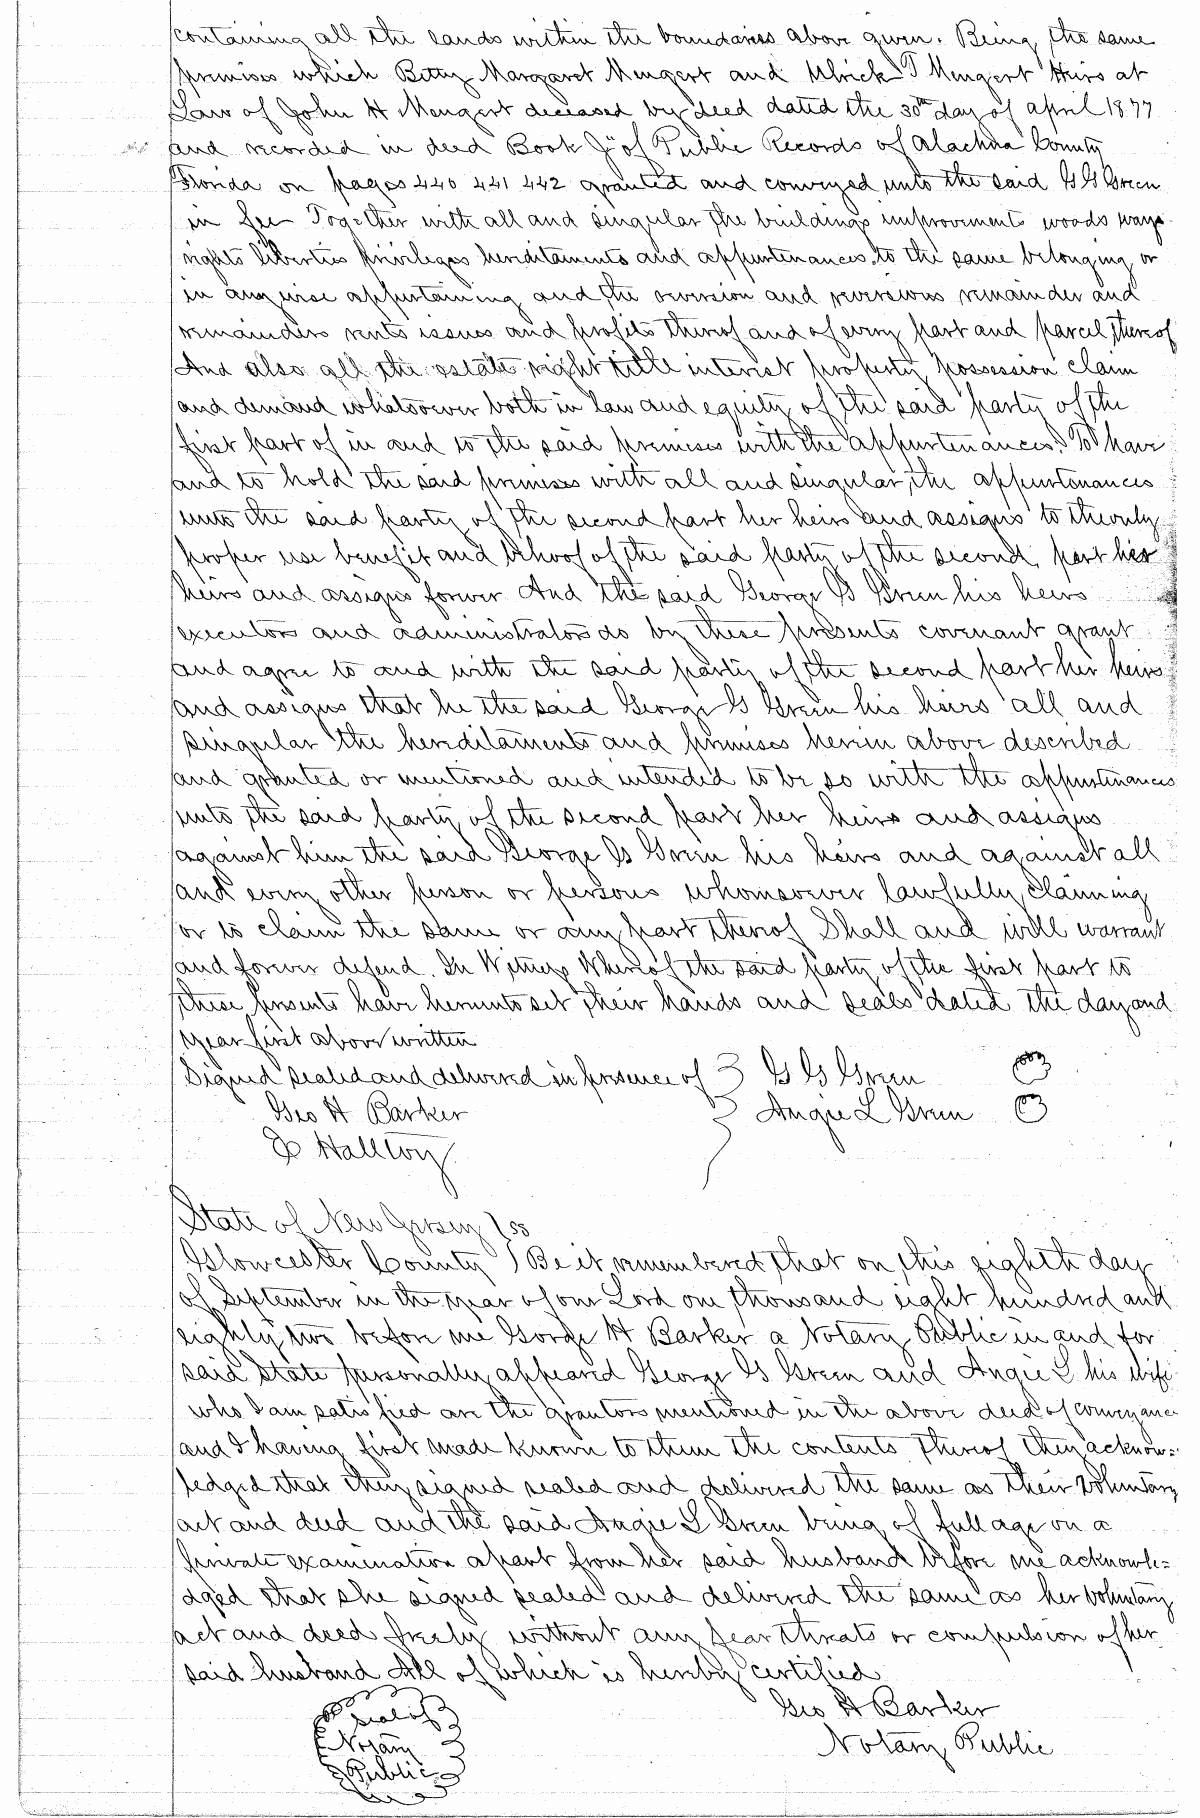 containing all the lands within the boundaries above given. Being the same
premises which Betty Margaret Mengert and Ulrick T Mengert Heirs at
Law of John H Mengert deceased by deed dated the 30th day of April 1877
and recorded in deed Book J of Public Records of Alachua County
Florida on pages 440 441 442 granted and conveyed unto the said G G Green
in fee Together with all and singular the buildings improvements woods ways
rights liberties privileges hereditaments and appurtenances to the same belonging or
in anywise appertaining and the reversion and reversions remainder and
remainders rents issues and profits thereof and of every part and parcel thereof
And also all the estate right title interest property possession claim
and demand whatsoever both in law and equity of the said party of the
first part of in and to the said premises with the appurtenances. To have
and to hold the said premises with all and singular the appurtenances
unto the said party of the second part her heirs and assigns to the only
proper use benefit and behoof of the said party of the second part her
heirs and assigns forever And the said George G Green his heirs
executors and administrators do by these presents covenant grant
and agree to and with the said party of the second part her heirs
and assigns that he the said George G Green his heirs all and
singular the hereditaments and premises herein above described
and granted or mentioned and intended to be so with the appurtenances
unto the said party of the second part her heirs and assigns
against him the said George G Green his heirs and against all
and every other person or persons whomsoever lawfully claiming
or to claim the same or any part thereof Shall and will warrant
and forever defend. In Witness Whereof the said party of the first part to
these presents have hereunto set their hands and seals dated the day and
year first above written
Signed sealed and delivered in presence of G G Green
Geo H Barker Angie L Green
State of New Jersey } ss
Gloucester County } Be it remembered that on this eighth day
of September in the year of our Lord one thousand eight hundred and
eighty two before me George H Barker a Notary Public in and for
said State personally appeared George G Green and Angie L his wife
who I am satisfied are the grantors mentioned in the above deed of conveyance
and I having first made known to them the contents thereof they acknow=
ledged that they signed sealed and delivered the same as their voluntary
act and deed and the said Angie L Green being of full age on a
private examination apart from her said husband before me acknowle=
dged that she signed sealed and delivered the same as her voluntary
act and deed freely without any fear threats or compulsion of her
said husband All of which is hereby certified
Geo H Barker
Notary Public
Seal of
Notary
Public